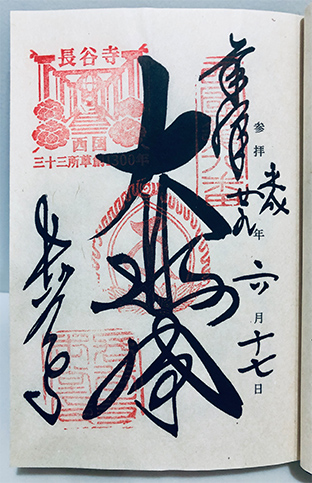 奉拝
参拝
平成廿九年六月十七日
大悲閣
長谷寺
長谷寺
西国
三十三所草創1300年